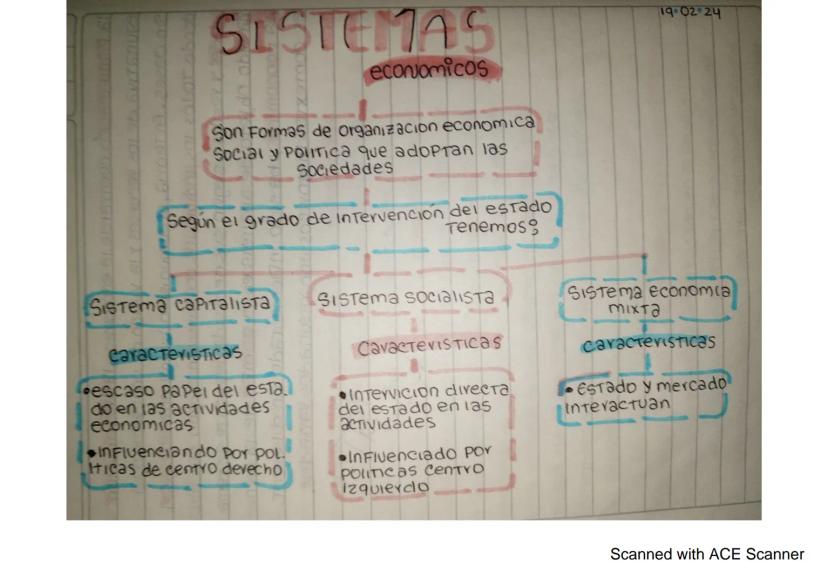 19·02·24
SISTEMAS
economicos
Son Formas de organizacion economica
social y Politica que adoptan las
sociedades
Según el grado de intervención del estado
tenemos?
Sistema capitalista
Sistema socialista
Sistema economia
mixta
caracteristicas
caracteristicas
caracteristicas
•escaso papel del esta
do en las actividades
economicas
•influenciando por pol.
iticas de centro derecho
•Intervicion directa
del estado en las
actividades
•Influenciado por
politicas centro
izquierdo
•Estado y mercado
interactuan
Scanned with ACE Scanner